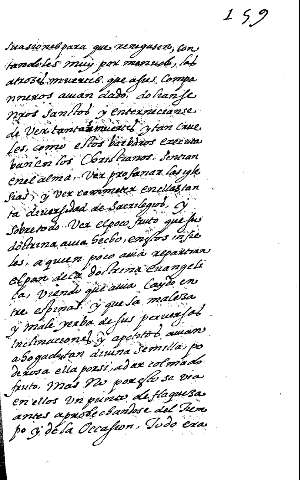 159
suasiones para que renegasen, con
tandoles muy por menudo, las
atroses muertes, que a sus compa
nneros auian dado. dolianse
nros Santos y enterneçianse
de Ver tantas muertes, y tan crue
les, como estos barbaros executa
ban en los Christianos. Sentian
en el alma, Ver profanar las ygle
sias, y Ver cometer en ellas tan
ta diversidad de Sacrilegios, y
sobre todo, Ver el poco fruto que su
doctrina auia hecho, en estos infie
les, a quien poco auia repartian
el pan de la doctrina Evangeli
ca, Viendo que auia Caydo en
tre espinas, y que la maleza
y mala yerba de sus perversas
inclinaciones y apetitos auian
ahogado tan divina Semilla, po
derosa ella por si, a dar colmado
fruto. Mas No por esto se via
en ellos Un punto de flaqueza
antes aprobechandose del Tiem
po y de la Occasion, Todo era